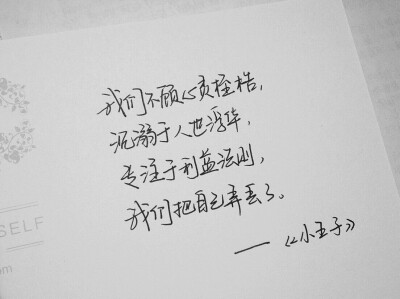 我们不顾心负桎梏，
沉溺于人世浮华，
专注于利益法则，
我们把自己弄丢了。
—《小王子》
SELF
om